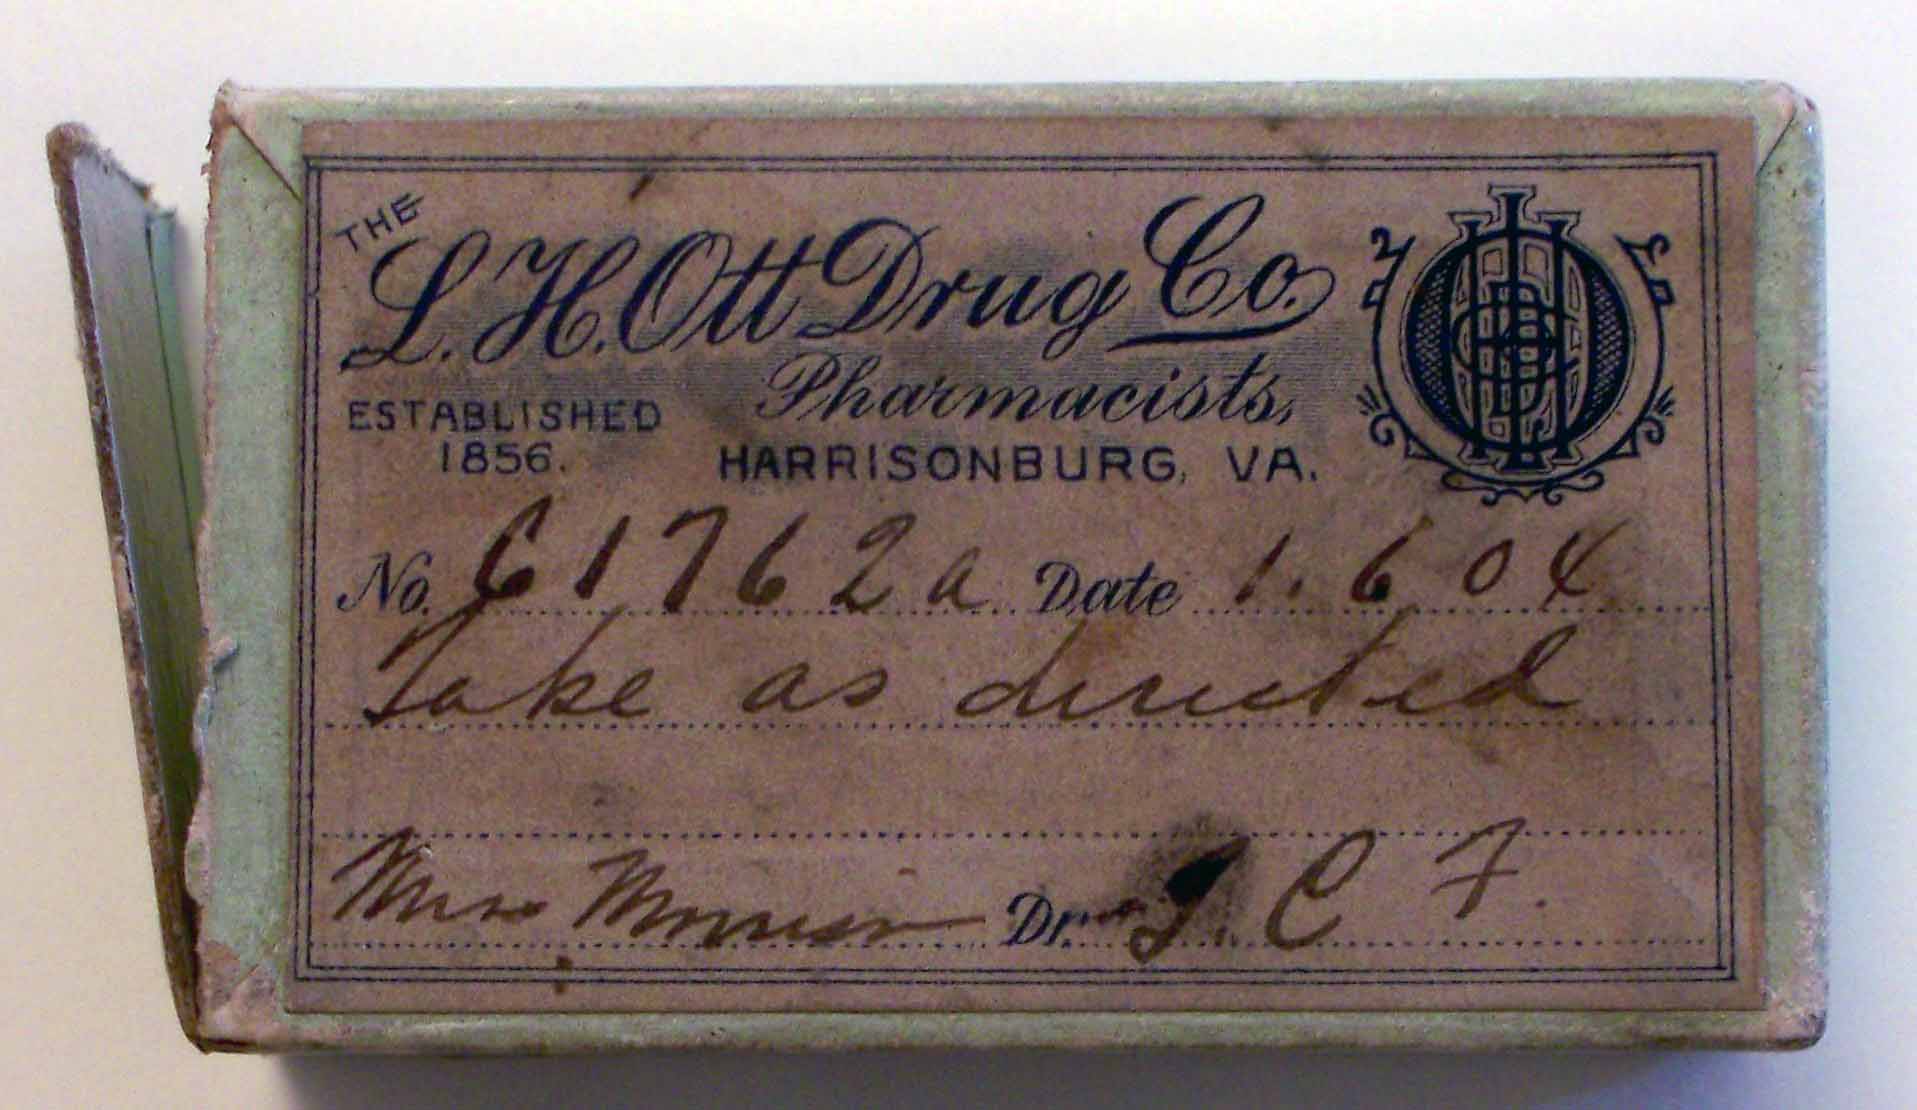 THE
L. H. Ott Drug Co.
Pharmacists,
ESTABLISHED
1856.
HARRISONBURG, VA.
No. 61762a Date 1. 6 04
Take as directed
Mrs Morrison Dr. J. C F.